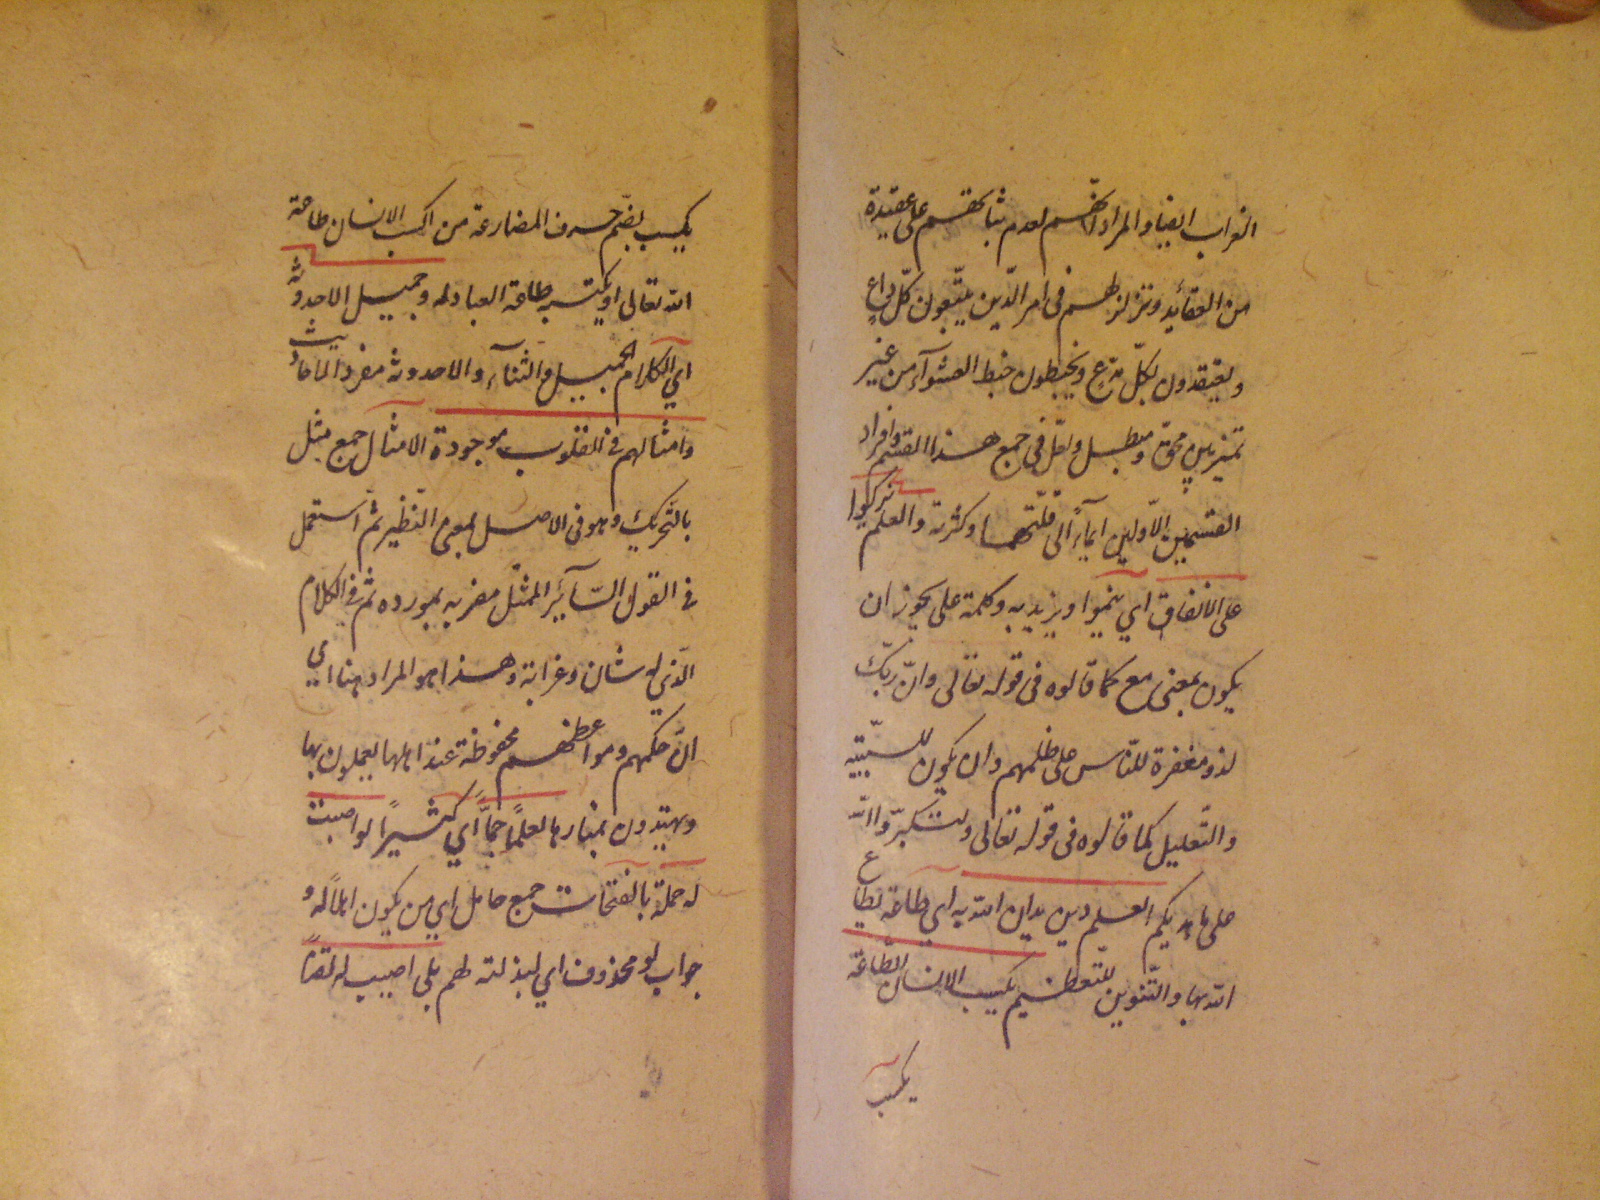 الغراب ايضا والمراد انهم لعدم ثباتهم على عقيدة
من العقائد وتزلزلهم فى امر الدّين يتّبعون كلّ داعٍ
ويعتقدون بكلّ مدّع ويخبطون خبط العشوآء من غير
تميز بين محقّ ومبطل ولعلّ فى جمع هذا القسم وافراد
القسمين الاوّلين ايمآءً الى قلّتهما وكثرته والعلم يزكوا
على الانفاق اي ينموا ويزيد به وكلمة على يجوز ان
يكون بمعنى مع كما قالوه فى قوله تعالى وانّ ربّك
لذو مغفرة للنّاس على ظلمهم وان يكون للسّببيّه
والتّعليل كما قالوه فى قوله تعالى ولتكبّروا اللّه
على ما هديكم العلم دين يدان اللّه به اي طاعة يطاع
اللّه بها والتّنوين للتّعظيم يكسب الانسان الطّاعة
يكسب
يكسب بضمّ حرف المضارعة من اكسب الانسان طاعة
اللّه تعالى او يكتسبه طاعة العباد له وجميل الاحدوثه
اي الكلام الجميل والثّنآء والاحدوثه مفرد الاحاديث
وامثالهم فى القلوب موجودة الامثال جمع مثل
بالتّحريك وهو فى الاصل بمعنى النّظير ثمّ استعمل
فى القول السّآئر الممثّل مضربه بمورده ثمّ فى الكلام
الّذي له شان وغرابة وهذا هو المراد ههنا اي
انّ حكمهم ومواعظهم محفوظة عند اهلها يعملون بها
ويهتدون بمنارها لعلمًا جمّاً اي كثيرًا لو اصبت
له حملة بالفتحات جمع حامل اي من يكون اهلاً له و
جواب لو محذوف اي لبذلته لهم بلى اصيب له لقنًا